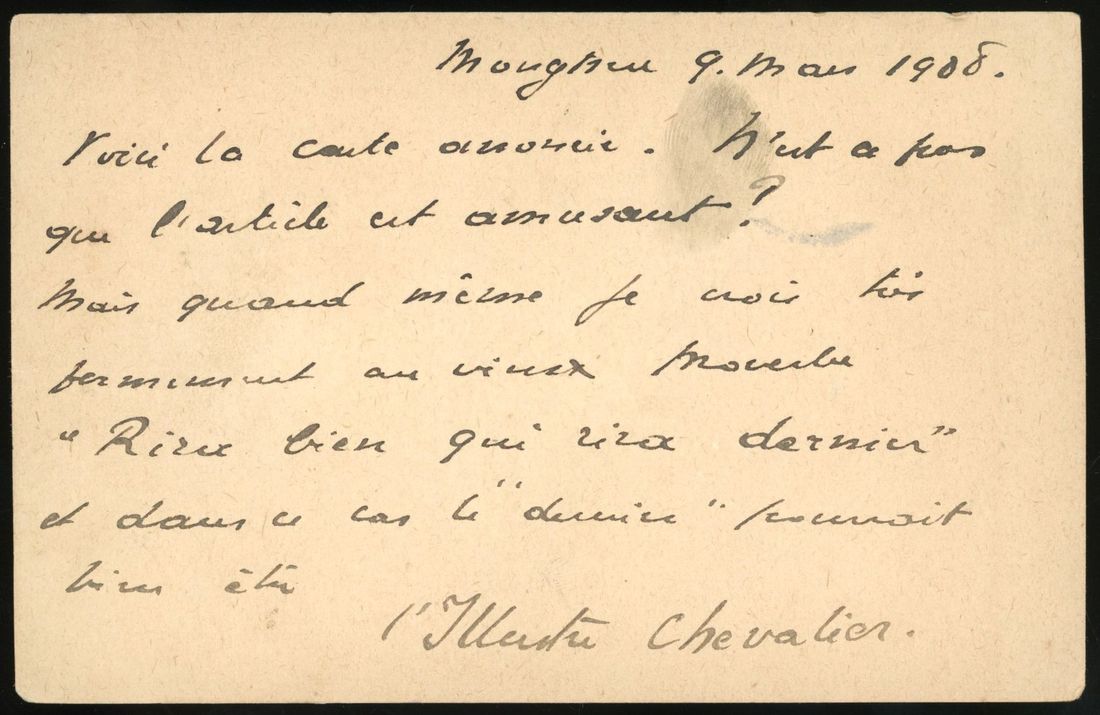 Monghyr 9. Mars 1908.
Voici la carte annoncée. N'est ce pas
que l'article est amusant?
Mais quand même je crois très
fermement au vieux proverbe
"Rira bien qui rira dernier"
et dans ce cas le "dernier" pourrait
bien être
l'Illustre Chevalier.